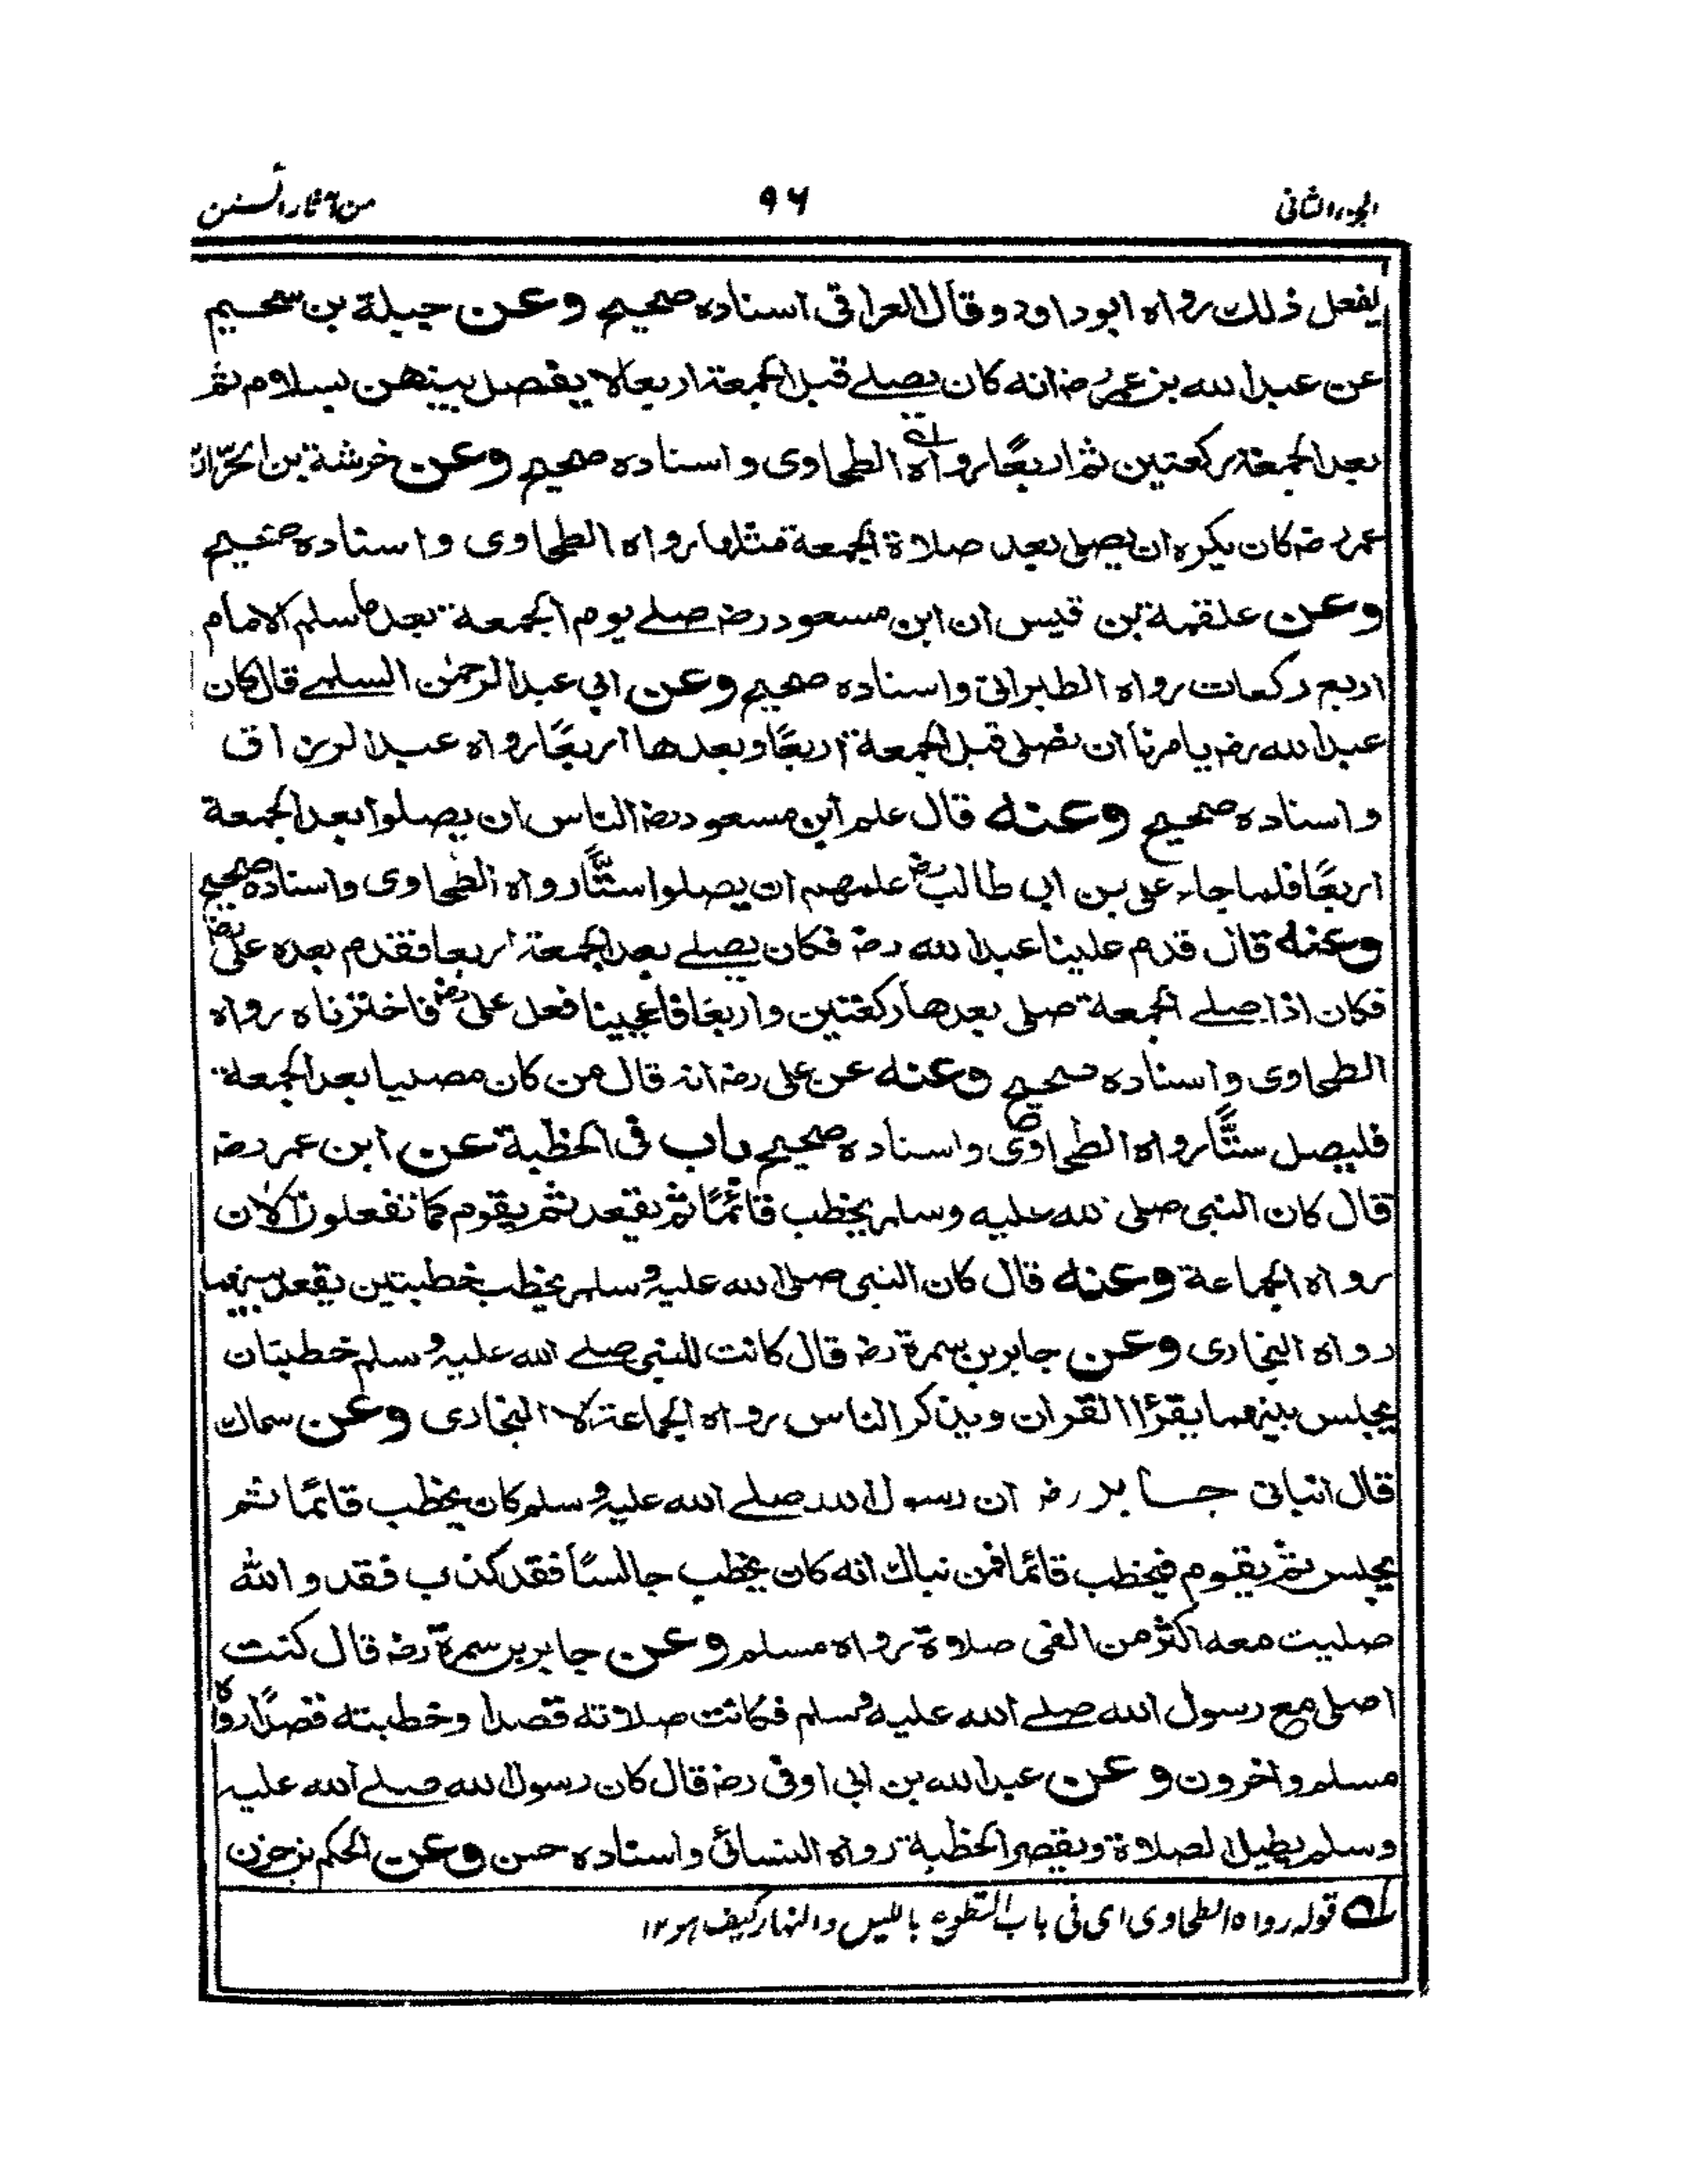 الجزء الثانی ٩٦ من آثار السنن
يفعل ذلك رواه ابوداود وقال العراقی اسناده صحيح وعن جبلة بن سحيم
عن عبد الله بن عمر رضـ انه كان يصلے قبل الجمعة اربعا لا يفصل بينهن بسلام ثم
بعد الجمعة ركعتين ثم اربعًا رواه الطحاوی واسناده صحيح وعن خرشة بن الحرّ ان
عمر رضـ كان يكره ان يصلی بعد صلاة الجمعة مثلها رواه الطحاوی واسناده صحيح
وعن علقمة بن قيس ان ابن مسعود رضـ صلے يوم الجمعة بعد ما سلم الامام
اربع ركعات رواه الطبرانی واسناده صحيح وعن ابی عبد الرحمٰن السلمے قال كان
عبد الله رضـ يامرنا ان نصلی قبل الجمعة اربعًا وبعدها اربعًا رواه عبد الرزاق
واسناده صحيح وعنه قال علم ابن مسعود رضـ الناس ان يصلوا بعد الجمعة
اربعًا فلما جاء علی بن ابی طالب رضـ علمهم ان يصلوا ستًّا رواه الطحاوی واسناده صحيح
وعنه قال قدم علينا عبد الله رضـ فكان يصلے بعد الجمعة اربعا فقدم بعده علی رضـ
فكان اذا صلے الجمعة صلی بعدها ركعتين واربعًا فاعجبنا فعل علی رضـ فاخترناه رواه
الطحاوی واسناده صحيح وعنه عن علی رضـ انه قال من كان مصليا بعد الجمعة
فليصل ستًّا رواه الطحاوی واسناده صحيح باب فی الخطبة عن ابن عمر رضـ
قال كان النبی صلی الله عليه وسلم يخطب قائمًا ثم يقعد ثم يقوم كما تفعلون الآن
رواه الجماعة وعنه قال كان النبی صلی الله عليه وسلم يخطب خطبتين يقعد بينهما
رواه البخاری وعن جابر بن سمرة رضـ قال كانت للنبی صلے الله عليه وسلم خطبتان
يجلس بينهما يقرأ القران ويذكر الناس رواه الجماعة الا البخاری وعن سماك
قال انبانی جابر رضـ ان رسول الله صلے الله عليه وسلم كان يخطب قائمًا ثم
يجلس ثم يقوم فيخطب قائما فمن نباك انه كان يخطب جالسًا فقد كذب فقد والله
صليت معه اكثر من الفی صلاة رواه مسلم وعن جابر بن سمرة رضـ قال كنت
اصلی مع رسول الله صلے الله عليه وسلم فكانت صلاته قصدا وخطبته قصدًا رواه
مسلم واخرون وعن عبد الله بن ابی اوفی رضـ قال كان رسول الله صلے الله عليه
وسلم يطيل الصلاة ويقصر الخطبة رواه النسائی واسناده حسن وعن الحكم بن حزن
لہ قوله رواه الطحاوی ای فی باب التطوع بالليل والنهار كيف هو ١٢